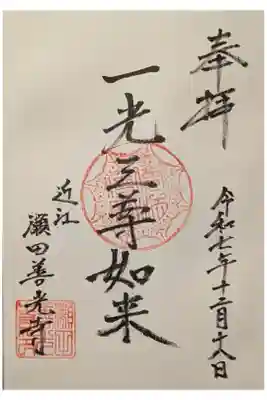 奉拝
令和七年十二月十八日
一光三尊如来
近江
瀬田善光寺